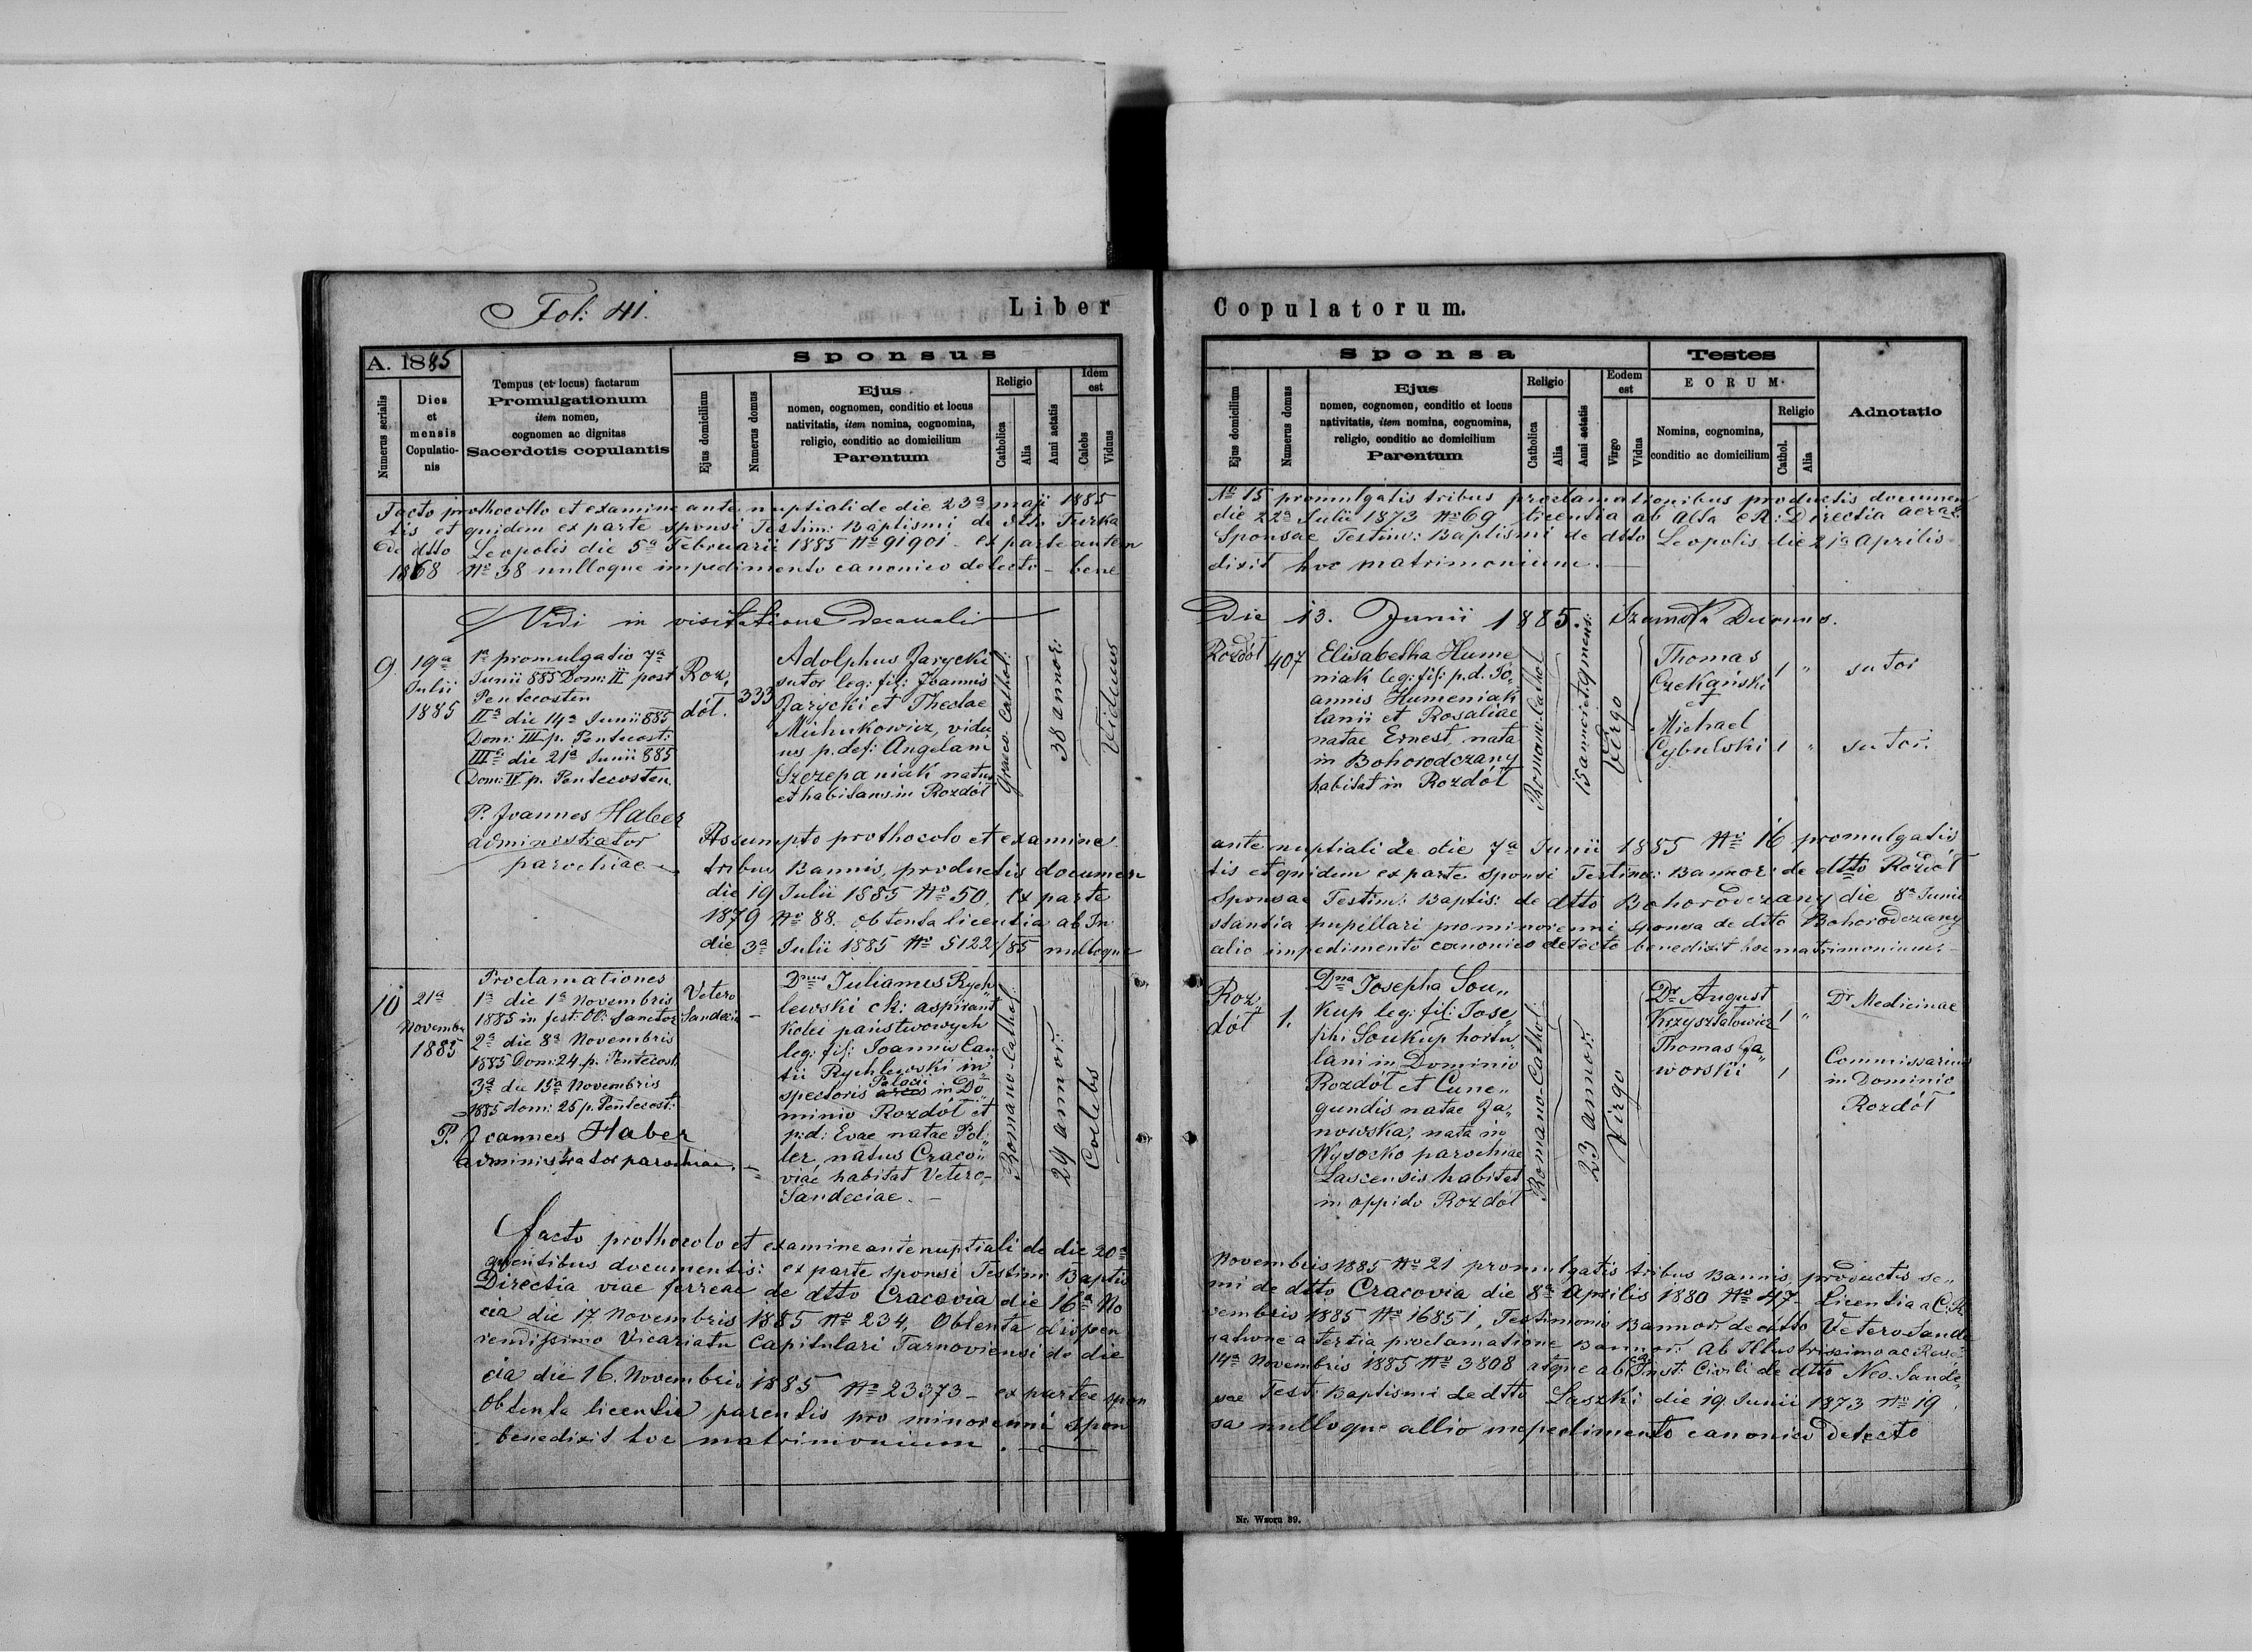 Fol: 41.
Liber
Copulatorum.
A. 1885
Numerus serialis
Dies
et
mensis
Copulatio-
nis
Tempus (et locus) factarum
Promulgationum
item nomen,
cognomen ac dignitas
Sacerdotis copulantis
Sponsus
Ejus domicilium
Numerus domus
Ejus
nomen, cognomen, conditio et locus
nativitatis, item nomina, cognomina,
religio, conditio ac domicilium
Parentum
Religio
Catholica
Alia
Anni aetatis
Idem
est
Calebs
Viduus
Facto prothocollo et examine ante nuptiali de die 23ª maji 1885
tis et quidem ex parte sponsi Testim: Baptismi de dtto Turka
de dtto Leopolis die 5ª Februarii 1885 No 91901 - ex parte autem
1868 No 38 nulloque impedimento canonico detecto - bene
Vidi in visitatione Decanali
9.
19ª
Julii
1885
1ª promulgatio 7ª
Junii 885 Dom: II post
Pentecosten
IIª die 14ª Junii 885
Dom: III p. Pentecost:
IIIª die 21ª Junii 885
Dom: IV p. Pentecosten.
P. Joannes Haber
administrator
parochiae
Roz„
dół.
333
Adolphus Jarycki
sutor leg: fil: Joannis
Jarycki et Theclae
Michnkowicz, vidu
us p. def: Angelani
Szczepaniak natus
et habitans in Rozdół
Graeco-Cathol:
38 annor:
Viduus
Assumpto prothocolo et examine
tribus Bannis, productis documen
die 19 Julii 1885 No 50, ex parte
1879 No 88. obtenta licentia ab In
die 3ª Julii 1885 No 5122/85 nulloque
10
21ª
Novembr
1885
Proclamationes
1ª die 1ª Novembris
1885 in fest. OO: Sanctor
2ª die 8ª Novembris
1885 Dom: 24 p. Pentecost:
3ª die 15ª Novembris
1885 dom: 25 p. Pentecost:
P. Joannes Haber
administrator parochiae.
Vetero
Sandecia
-
Dnus Julianus Rych„
lewski ck: aspirant
Kolei państwowych
leg: fil: Joannis Can„
tii Rychlewski in„
Palacii
spectoris in Do„
minio Rozdół et
p:d: Evae natae Pol„
ler natus Craco„
viae habitat Vetero-
Sandeciae. -
Romano-Cathol:
29 annor:
Coelebs
Facto prothocolo et examine antenuptiali de die 20ª
quentibus documentis: ex parte sponsi Testim: Baptis
Directia viae ferreae de dtto Cracovia die 16ª No
cia die 17 Novembris 1885 No 234, Obtenta dispen
rendissimo Vicariatu Capitulari Tarnoviensi de die
cia die 16. Novembris 1885 No 23373 - ex parte spon
Obtenta licentia parentis pro minorenni spon
benedixit hoc matrimonium.
Sponsa
Ejus domicilium
Numerus domus
Ejus
nomen, cognomen, conditio et locus
nativitatis, item nomina, cognomina,
religio, conditio ac domicilium
Parentum
Religio
Catholica
Alia
Anni aetatis
Eodem
est
Virgo
Vidua
Testes
EORUM
Nomina, cognomina,
conditio ac domicilium
Religio
Cathol.
Alia
Adnotatio
No 15 promulgatis tribus proclamationibus productis documen
die 22ª Julii 1873 No 69 licentia ab Alta cR: Directia aerar:
Sponsae Testim: Baptismi de dtto Leopolis die 21ª Aprilis
dixit hoc matrimonium.
Die 13. Junii 1885.
Rozdół
407
Elisabetha Hume
niak leg: fil: p.d. Jo„
annis Humeniak
lanii et Rosaliae
natae Ernest, nata
in Bohorodczany
habitat in Rozdół
Romano-Cathol
15 annor: et 9 mens:
Virgo
Thomas
Czekański
et
Michael
Cybulski
1 „
1 „
sutor
sutor.
ante nuptiali de die 7ª Junii 1885 No 16 promulgatis
tis et quidem ex parte sponsi Testimo: Bannor: de dtto Rozdół
Sponsae Testim: Baptis: de dtto Bohorodczany die 8ª Junii
stantia pupillari pro minorenni sponsa de dtto Bohorodczany
alio impedimento canonico detecto benedixit hoc matrimonium. -
Roz„
dół
1.
Dna Josepha Sou„
kup leg: fil: Jose„
phi Soukup hortu„
lani in Dominio
Rozdół et Cune„
gundis natae Ja„
nowska, nata in
Wysocko parochiae
Lascensis habitat
in oppido Rozdół
Romano-Cathol:
23 annor:
Virgo
Dr August
Krzyształowicz
Thomas Ja„
worskii
1 „
1
Dr Medicinae
Commissarius
in Dominio
Rozdół
Novembris 1885 No 21 promulgatis tribus Bannis, productis se„
mi de dtto Cracovia die 8ª Aprilis 1880 No 47 - Licentia a C.R.
vembris 1885 No 16851, Testimonio Bannor: de dtto Vetero Sande
satione a tertia proclamatione Bannor: Ab Illustrissimo ac Reve„
14ª Novembris 1885 No 3808 atque ab Inst: Civili de dtto Neo-Sande„
sae Test: Baptismi de dtto Laszki die 19 Junii 1873 No 19.
sa nulloque allio impedimento canonico detecto
Nr. Wzoru 39.